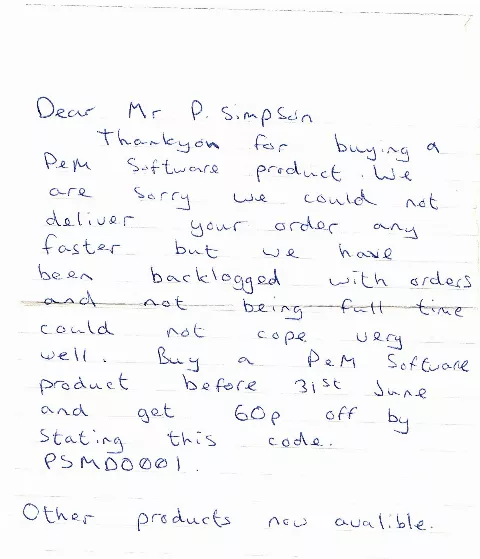 Dear Mr P. Simpson
Thankyou for buying a
PeM Software product. We
are sorry we could not
deliver your order any
faster but we have
been backlogged with orders
and not being full time
could not cope very
well. Buy a PeM Software
product before 31st June
and get 60p off by
stating this code.
PSMD0001.
Other products now avalible.